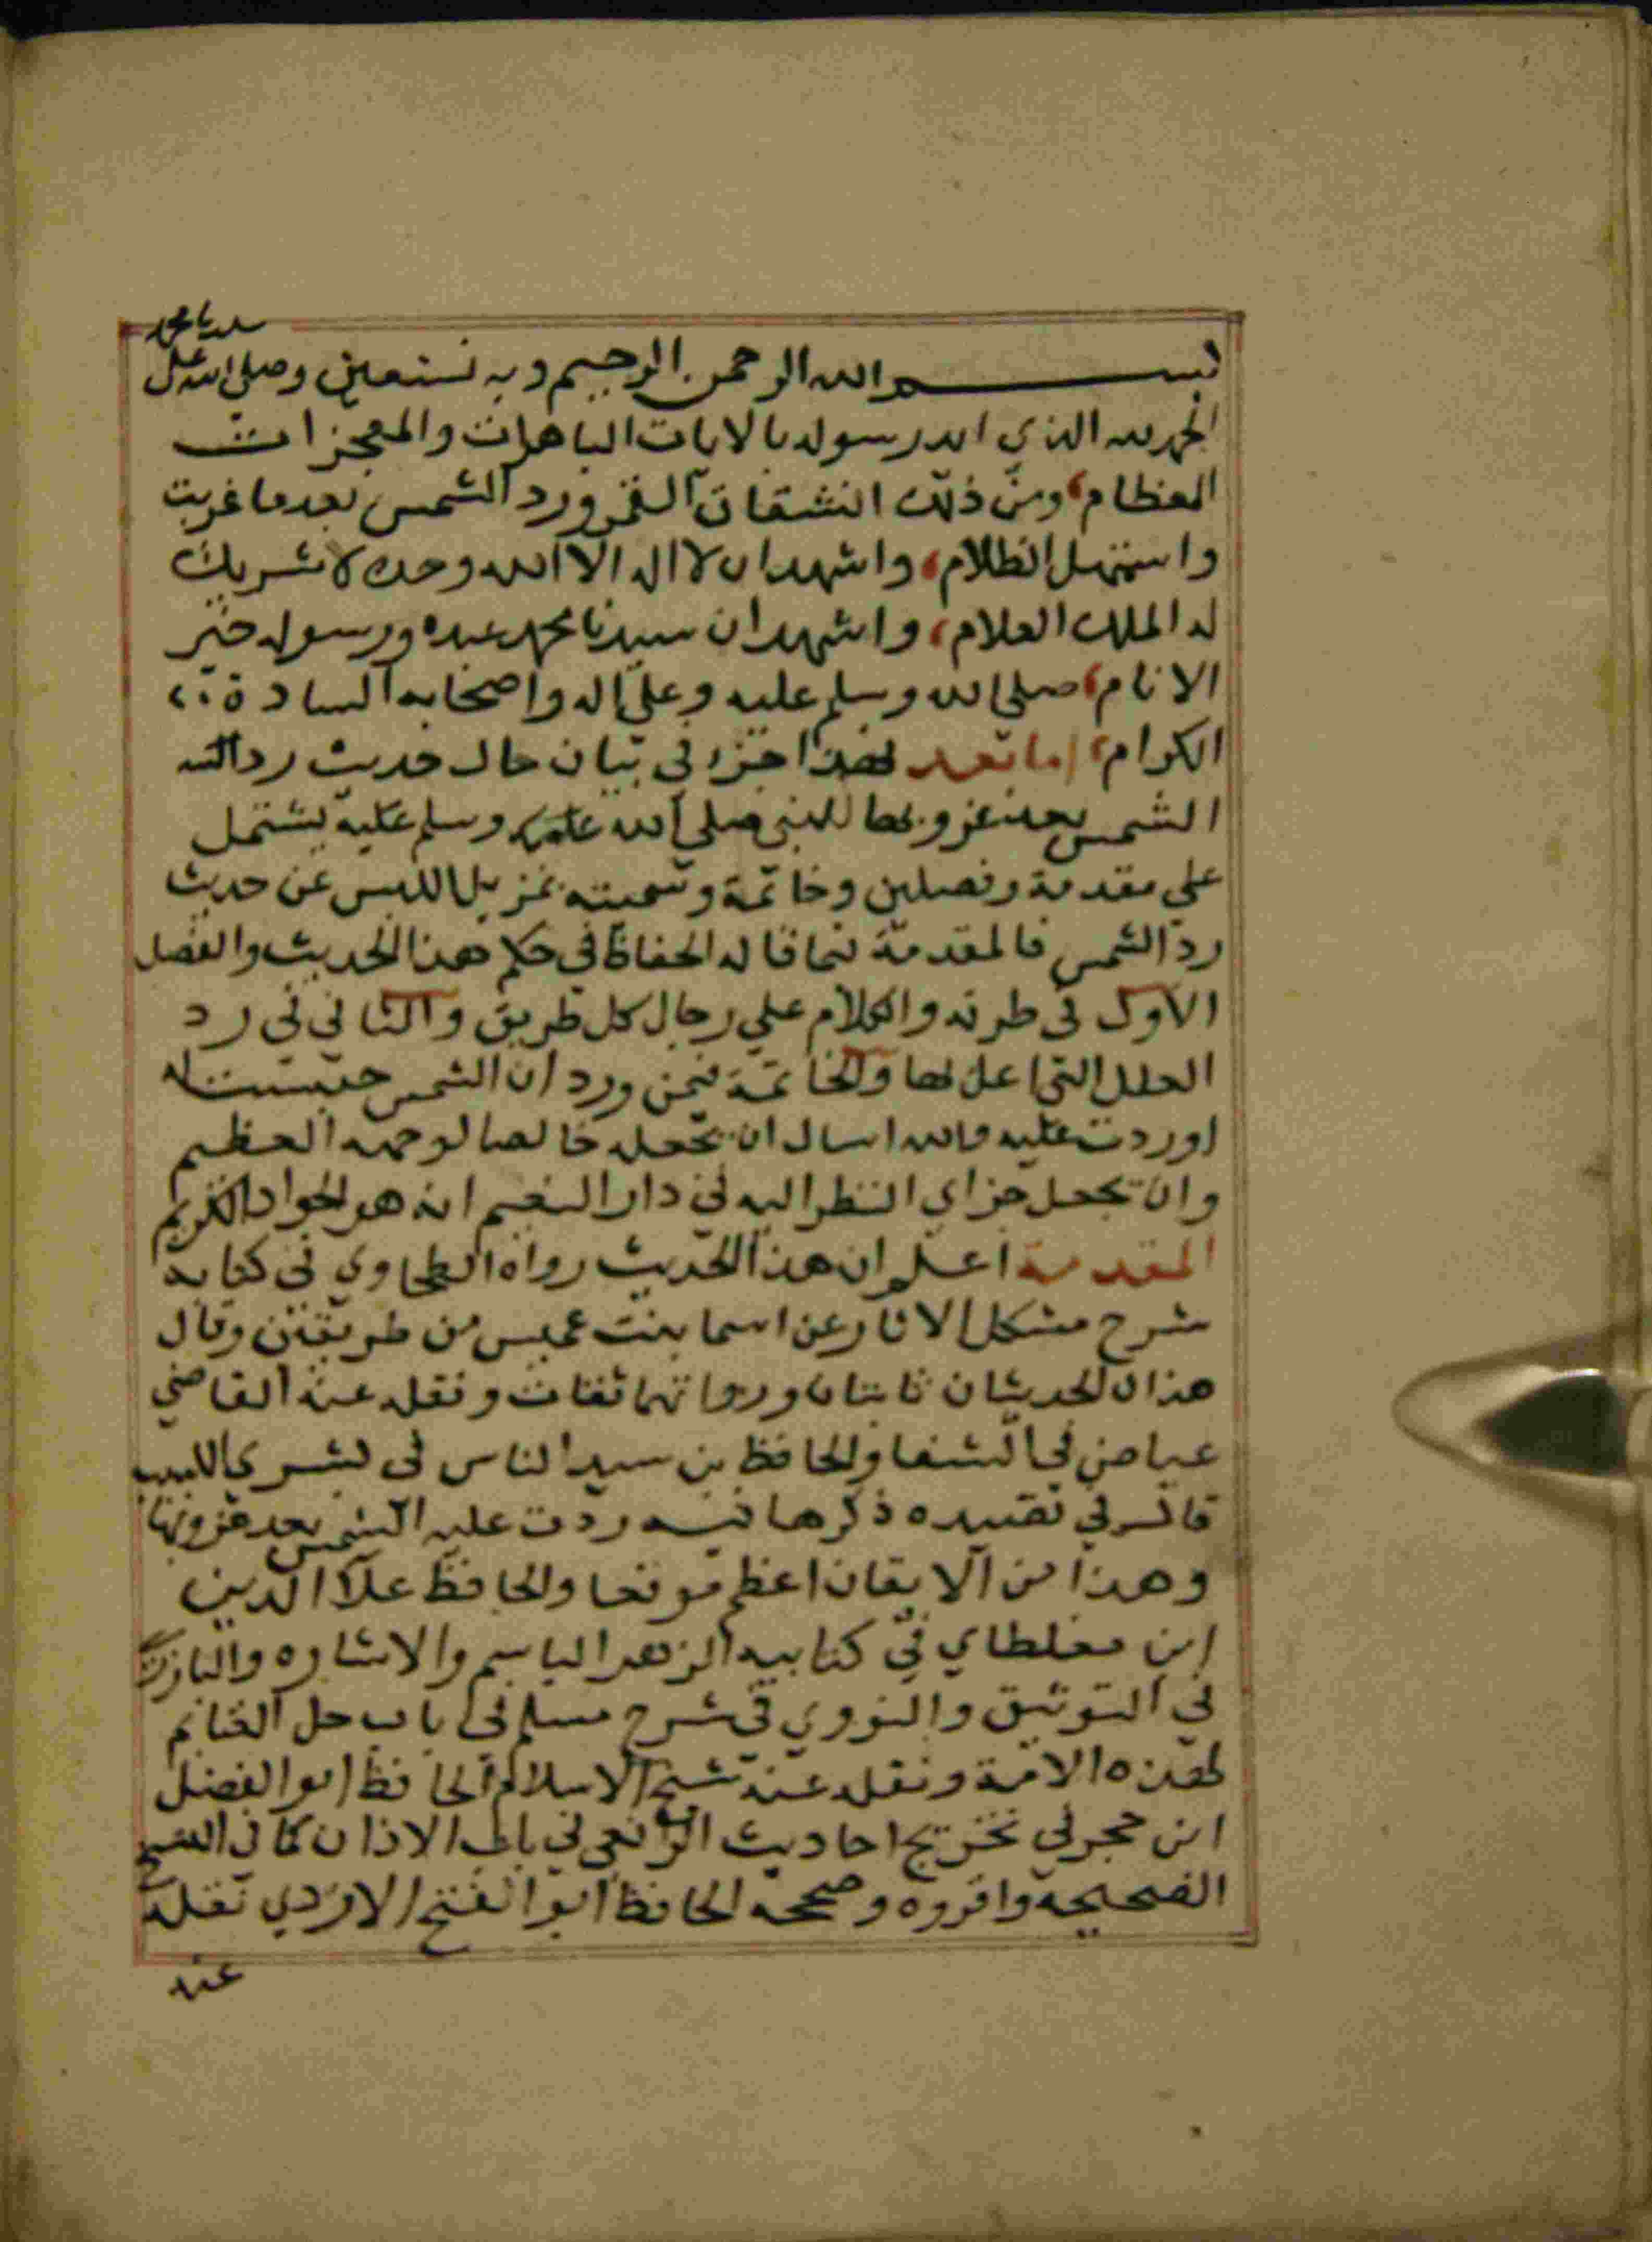 سيدنا محمد
بسم الله الرحمن الرحيم وبه نستعين وصلى الله على
الحمد لله الذي ايد رسوله بالايات الباهرات والمعجزات
العظام، ومن ذلك انشقاق القمر ورد الشمس بعد ما غربت
واستهل الظلام، واشهد ان لا اله الا الله وحده لا شريك
له الملك العلام، واشهد ان سيدنا محمد عبده ورسوله خير
الانام، صلى الله وسلم عليه وعلى اله واصحابه السادة
الكرام، اما بعد فهذا جزء في بيان حال حديث رد
الشمس بعد غروبها للنبي صلى الله عليه وسلم عليه يشتمل
علي مقدمة وفصلين وخاتمة وسميته بمزيل اللبس عن حديث
رد الشمس فالمقدمة فيما قاله الحفاظ في حكم هذا الحديث والفصل
الاول في طرقه والكلام علي رجال كل طريق والثاني في رد
العلل التي اعل بها والخاتمة فيمن ورد ان الشمس حبست له
او ردت عليه والله اسال ان يجعله خالصا لوجهه العظيم
وان يجعل جزاي النظر اليه في دار النعيم انه هو الجواد الكريم
المقدمة اعلم ان هذا الحديث رواه الطحاوي في كتابه
شرح مشكل الاثار عن اسما بنت عميس من طريقين وقال
هذان الحديثان ثابتان ورواتهما ثقات ونقله عنه القاضي
عياض في الشفا والحافظ بن سيد الناس في بشري اللبيب
قال في قصيده ذكرها فيه ردت عليه الشمس بعد غروبها
وهذا من الايقان اعظم موقعا والحافظ علا الدين
ابن مغلطاي في كتابيه الزهر الباسم والاشاره والبارزي
في التوثيق والنووي في شرح مسلم في باب حل الغنائم
لهذه الامة ونقله عنه شيخ الاسلام الحافظ ابو الفضل
ابن حجر في تخريج احاديث الرافعي في باب الاذان كما في النسخ
الصحيحة واقروه وصححه الحافظ ابو الفتح الازدي نقله
عنه